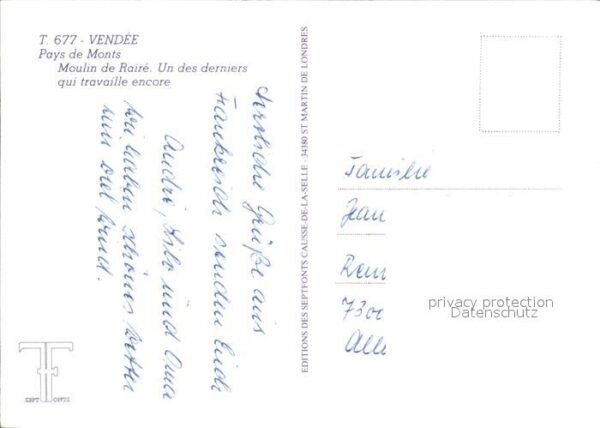 T. 677 - VENDÉE
Pays de Monts
Moulin de Rairé. Un des derniers
qui travaille encore
Herzliche Grüße aus
Frankreich senden Euch
André, und Oma
Wir haben schönes Wetter
und viel Wind.
EDITIONS DES SEPTFONTS CAUSSE-DE-LA-SELLE - 34380 ST MARTIN DE LONDRES
Familie
Jean
7300
privacy protection
Datenschutz
SEPT FONTS